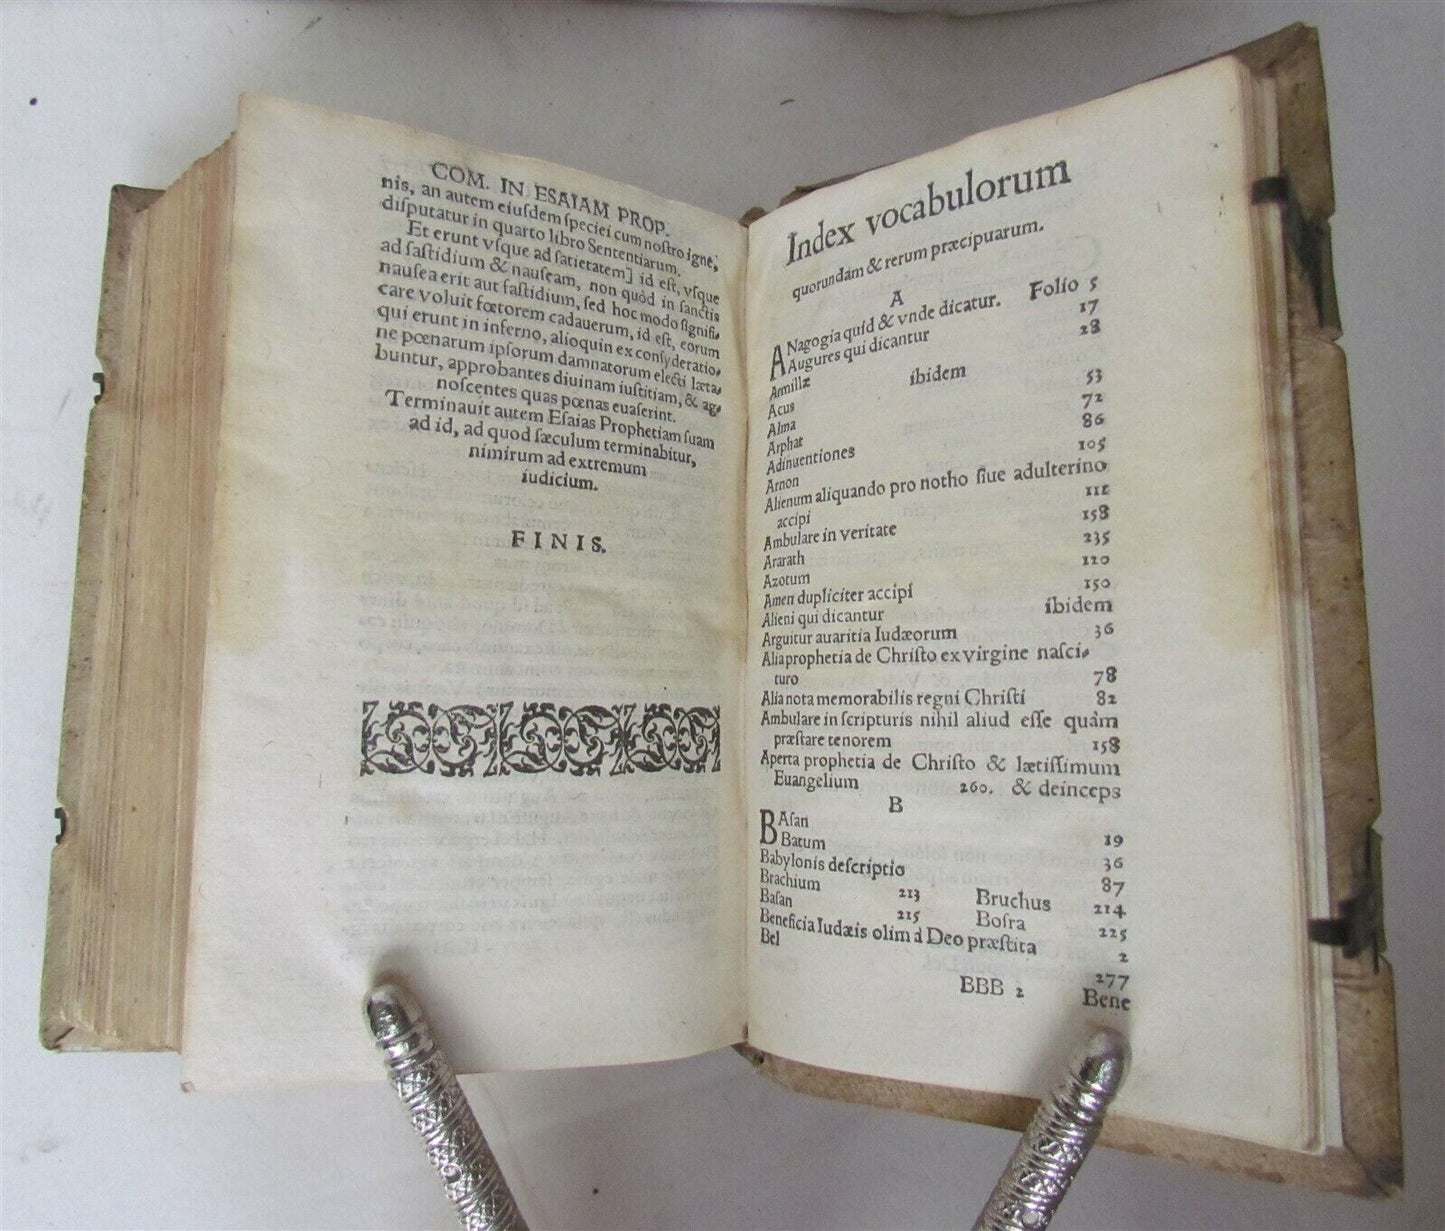 COM. IN ESAIAM PROP.
nis, an autem eiuſdem ſpeciei cum noſtro igne,
diſputatur in quarto libro Sententiarum.
Et erunt vſque ad ſatietatem] id eſt, vſque
ad faſtidium & nauſeam, non quòd in ſanctis
nauſea erit aut faſtidium, ſed hoc modo ſignifi-
care voluit fœtorem cadauerum, id eſt, eorum
qui erunt in inferno, alioquin ex conſyderatio-
ne pœnarum ipſorum damnatorum electi læta-
buntur, approbantes diuinam iuſtitiam, & ag-
noſcentes quas pœnas euaſerint.
Terminauit autem Eſaias Prophetiam ſuam
ad id, ad quod ſæculum terminabitur,
nimirum ad extremum
iudicium.
FINIS.
Index vocabulorum
quorundam & rerum præcipuarum.
A
ANagogia quid & vnde dicatur. Folio 5
Augures qui dicantur 17
Armillæ 28
Acus ibidem
Alma 53
Arphat 72
Adinuentiones 86
Arnon 105
Alienum aliquando pro notho ſiue adulterino
accipi 112
Ambulare in veritate 158
Ararath 235
Azotum 120
Amen dupliciter accipi 150
Alieni qui dicantur ibidem
Arguitur auaritia Iudæorum 36
Alia prophetia de Chriſto ex virgine naſci-
turo 78
Alia nota memorabilis regni Chriſti 82
Ambulare in ſcripturis nihil aliud eſſe quàm
præſtare tenorem 158
Aperta prophetia de Chriſto & lætiſſimum
Euangelium 260. & deinceps
B
BAſan 19
Batum 36
Babylonis deſcriptio 87
Brachium 213 Bruchus 214
Baſan 215 Boſra 225
Beneficia Iudæis olim à Deo præſtita 2
Bel 277
BBB 2 Bene